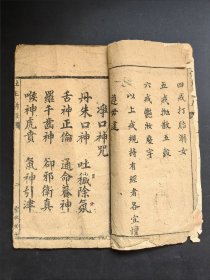 四戒打胎溺女
五戒抛散五穀
六戒艷妝廢字
以上戒規持有經者各宜懍
遵毋違
淨口神咒
丹朱口神　吐穢除氛
舌神正倫　通命養神
羅千齒神　却邪衛真
喉神虎賁　氣神引津